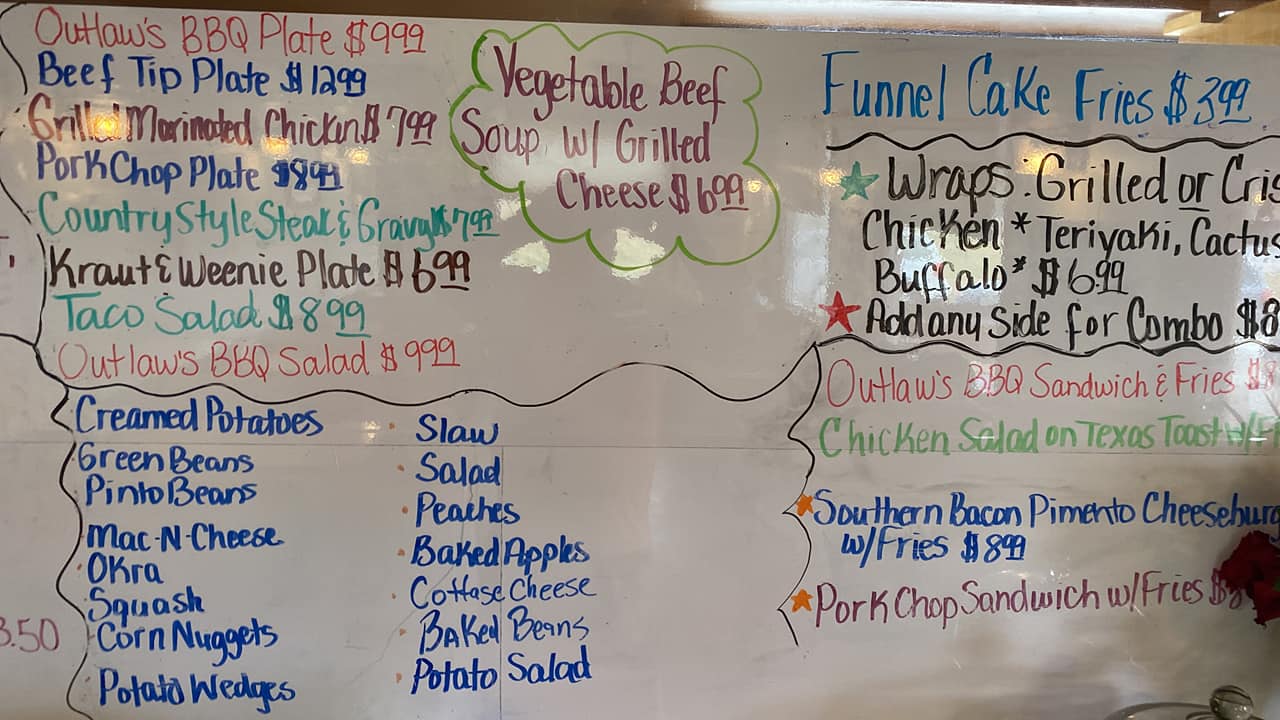 Outlaw's BBQ Plate $9.99
Beef Tip Plate $12.99
Grilled Marinated Chicken $7.99
Pork Chop Plate $8.99
Country Style Steak & Gravy $7.99
Kraut & Weenie Plate $6.99
Taco Salad $8.99
Outlaw's BBQ Salad $9.99
Vegetable Beef
Soup w/ Grilled
Cheese $6.99
Funnel Cake Fries $3.99
Wraps: Grilled or Cris
Chicken * Teriyaki, Cactus
Buffalo* $6.99
Add any Side for Combo $8
Outlaw's BBQ Sandwich & Fries $8
Chicken Salad on Texas Toast w/F
Southern Bacon Pimento Cheeseburg
w/Fries $8.99
Pork Chop Sandwich w/Fries $8
Creamed Potatoes
Green Beans
Pinto Beans
Mac-N-Cheese
Okra
Squash
Corn Nuggets
Potato Wedges
Slaw
Salad
Peaches
Baked Apples
Cottage Cheese
BAKed Beans
Potato Salad
3.50